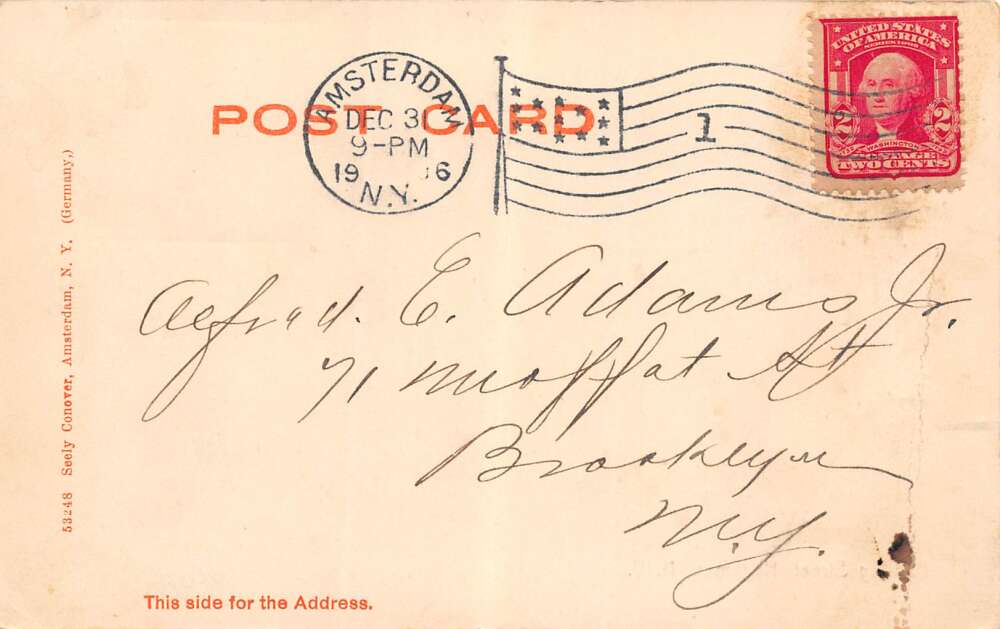 POST CARD
AMSTERDAM
DEC 31
9-PM
19 6
N.Y.
1
UNITED STATES
OF AMERICA
SERIES 1902
2 2
WASHINGTON
POSTAGE
TWO CENTS
Alfred. E. Adams Jr.
71 Moffat St
Brooklyn
N.Y.
53248 Seely Conover, Amsterdam, N. Y. (Germany,)
This side for the Address.